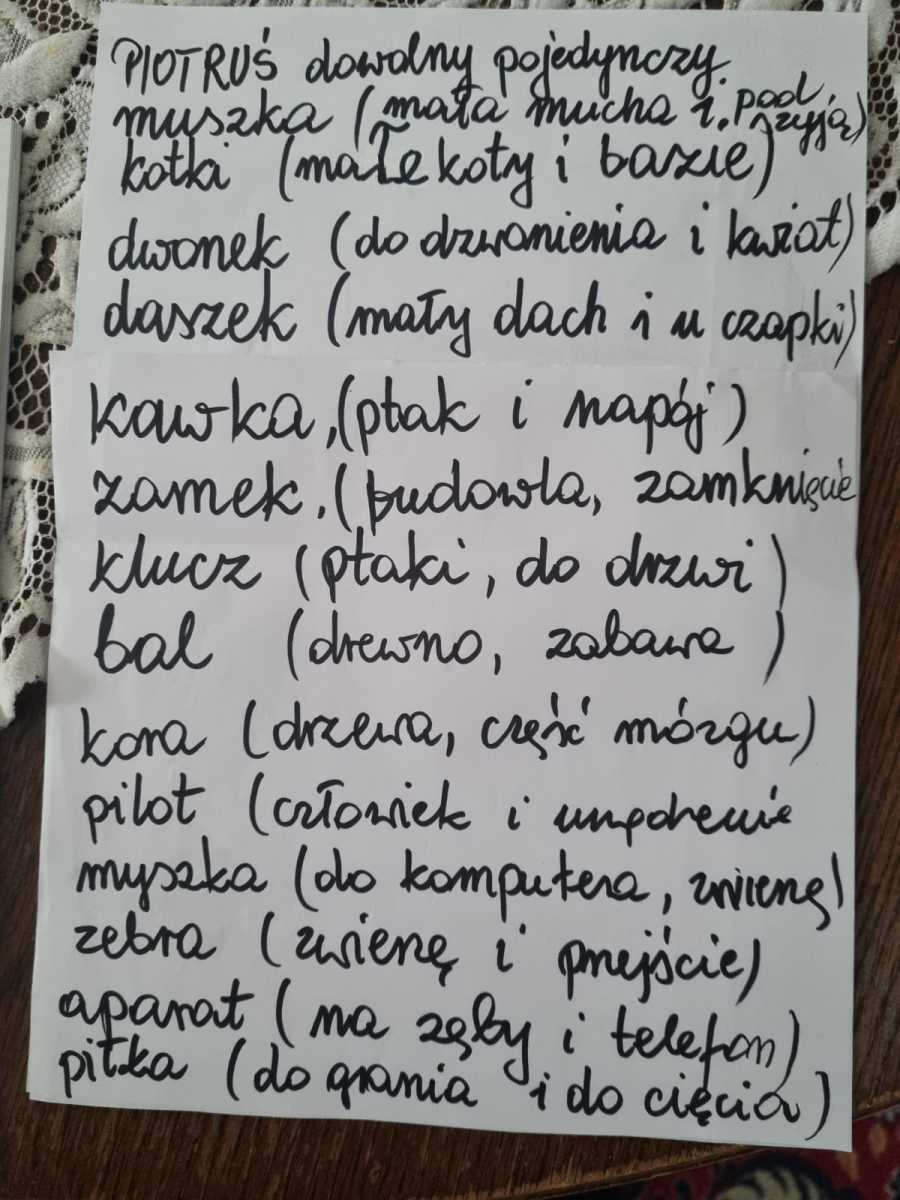 PIOTRUŚ dowolny pojedynczy
muszka (mała mucha i pod szyją)
kotki (małe koty i bazie)
dwonek (do dzwonienia i kwiat)
daszek (mały dach i u czapki)
kawka, (ptak i napój)
zamek, (budowla, zamknięcie
klucz (ptaki, do drzwi)
bal (drewno, zabawa)
kora (drzewa, część mózgu)
pilot (człowiek i urządzenie
myszka (do komputera, zwierzę)
zebra (zwierzę i przejście)
aparat (na zęby i telefon)
piłka (do grania i do cięcia)